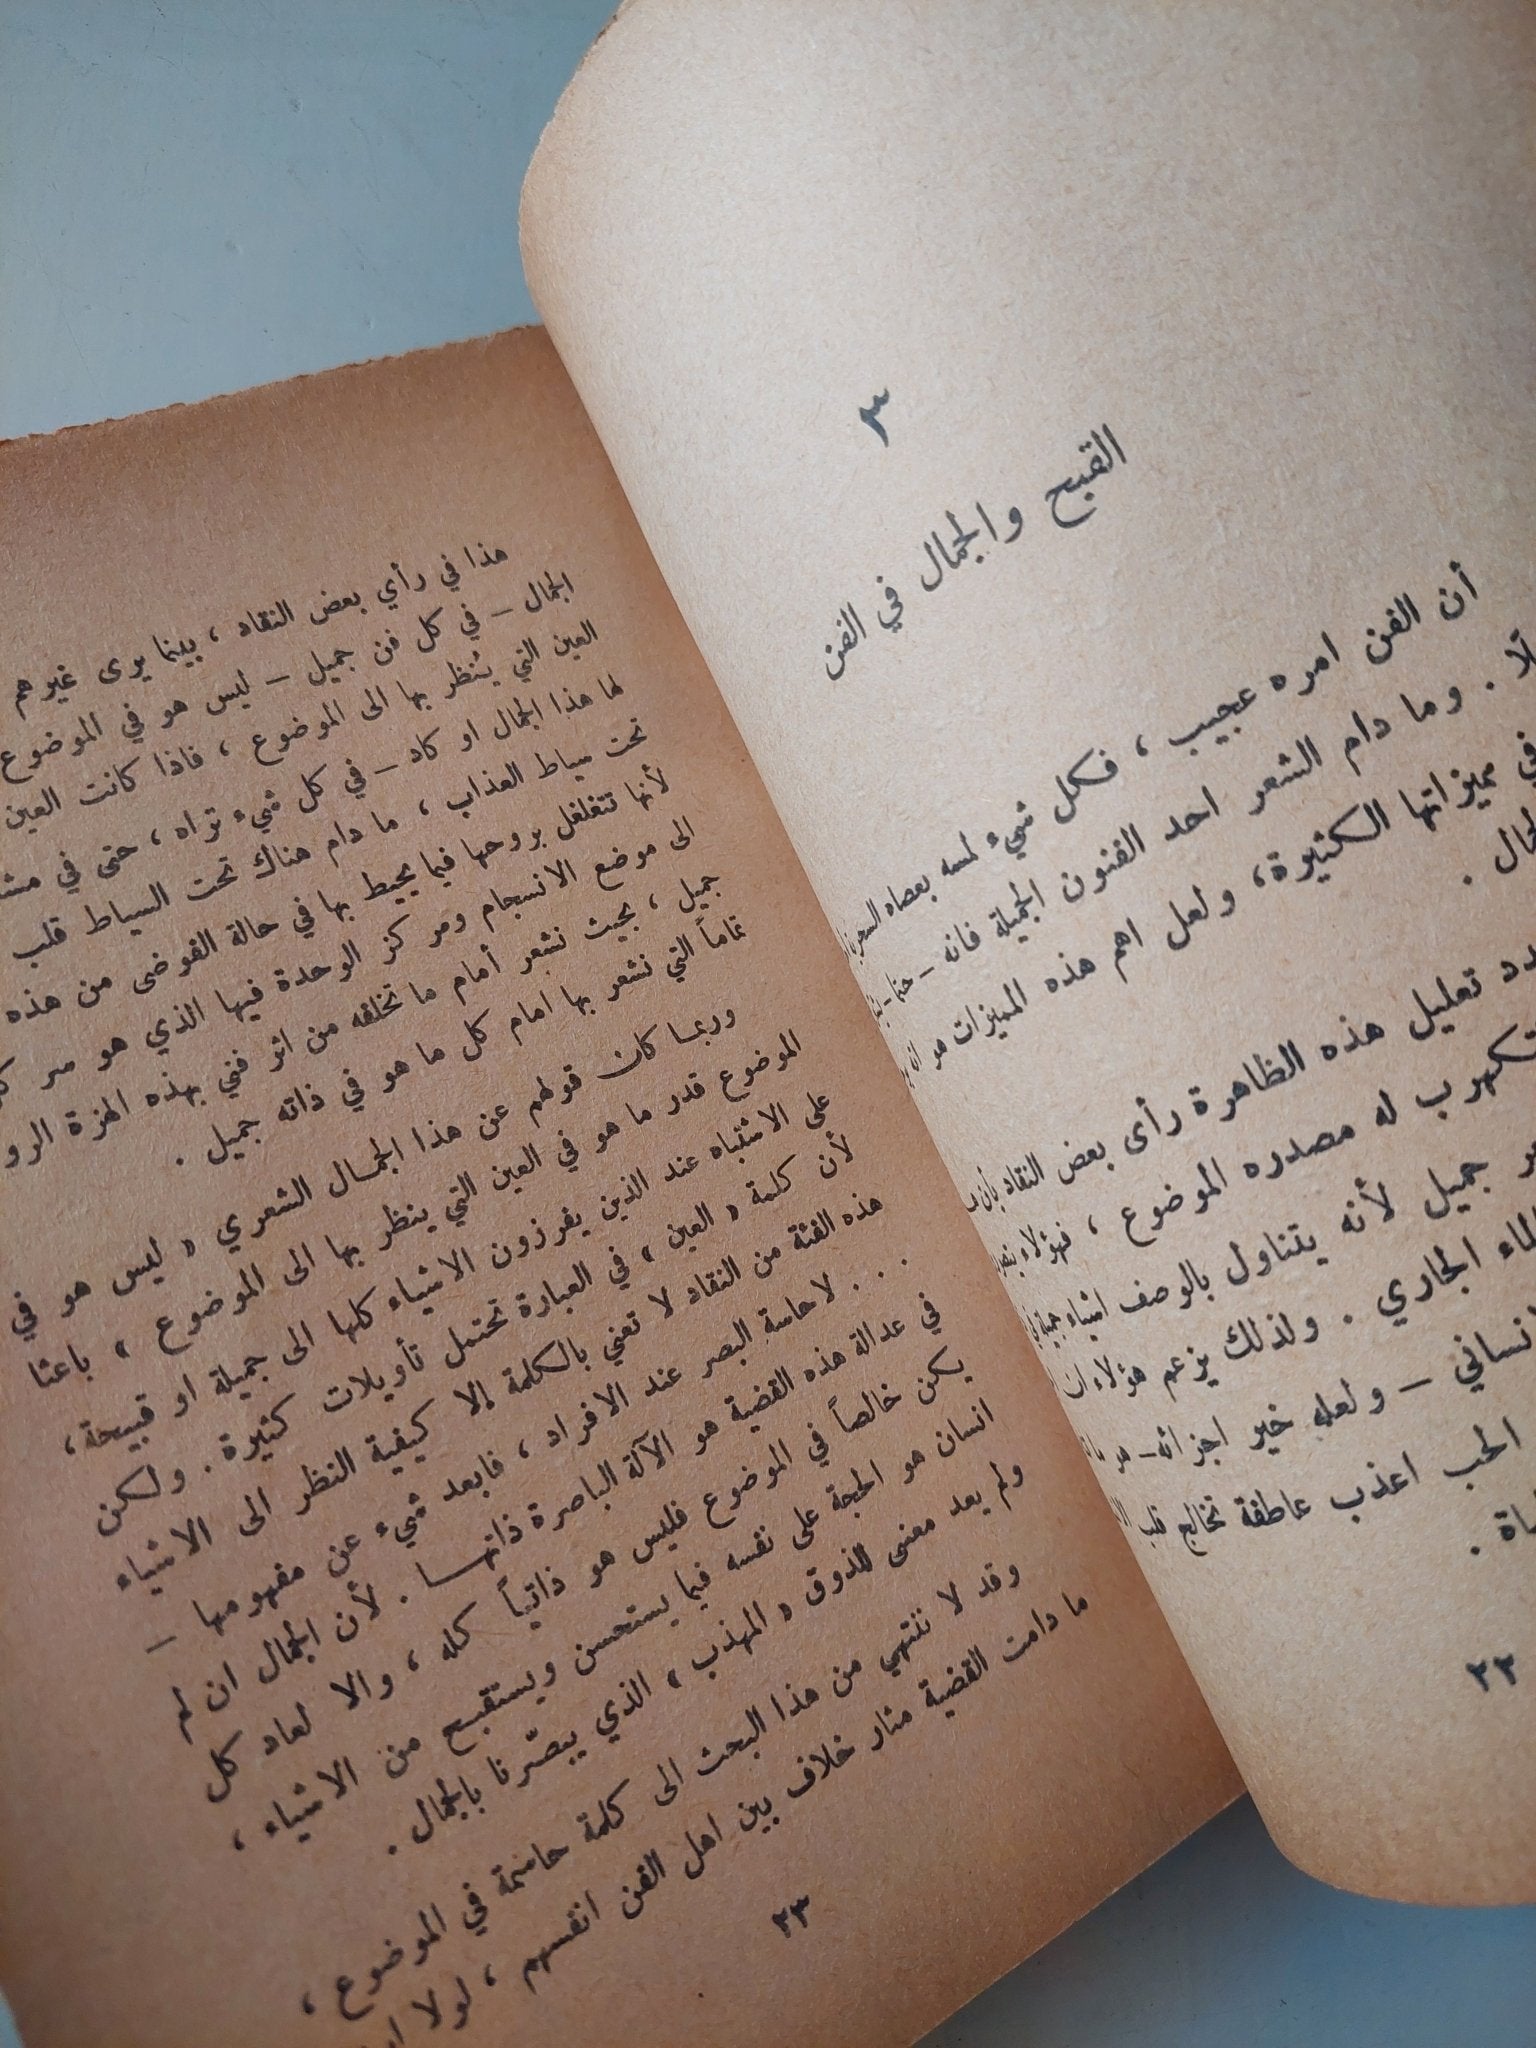 ٣
القبح والجمال في الفن
أن الفن امره عجيب ، فكل شيء لمسه بعصاه
. وما دام الشعر احد الفنون الجميلة فانه - حتما -
في مميزاتها الكثيرة، ولعل اهم هذه المميزات هو
.
تعليل هذه الظاهرة رأى بعض النقاد بأن
له مصدره الموضوع ، فهؤلاء
جميل لأنه يتناول بالوصف اشياء جميلة
الجاري . ولذلك يزعم هؤلاء ان
– ولعله خير اجزائه – هو
الحب اعذب عاطفة تخالج قلب
.
٢٢
هذا في رأي بعض النقاد ، بينما يرى غيرهم
الجمال – في كل فن جميل – ليس هو في الموضوع
العين التي يُنظر بها الى الموضوع ، فاذا كانت العين
لها هذا الجمال او كاد – في كل شيء تراه ، حتى في
تحت سياط العذاب ، ما دام هناك تحت السياط قلب
لأنها تتغلغل بروحها فيما يحيط بها في حالة الفوضى من هذه
الى موضع الانسجام ومركز الوحدة فيها الذي هو سر
جميل ، بحيث نشعر أمام ما تخلقه من اثر فني بهذه الهزة
تماماً التي نشعر بها امام كل ما هو في ذاته جميل .
وربما كان قولهم عن هذا الجمال الشعري « ليس هو في
الموضوع قدر ما هو في العين التي ينظر بها الى الموضوع » باعثا
على الاشتباه عند الذين يفرزون الاشياء كلها الى جميلة او قبيحة،
لأن كلمة « العين » في العبارة تحتمل تأويلات كثيرة . ولكن
هذه الفئة من النقاد لا تعني بالكلمة إلا كيفية النظر الى الاشياء
. . . لا حاسة البصر عند الافراد ، فابعد شيء عن مفهومها –
في عدالة هذه القضية هو الآلة الباصرة ذاتها . لأن الجمال ان لم
يكن خالصاً في الموضوع فليس هو ذاتياً كله ، والا لعاد كل
انسان هو الحجة على نفسه فيما يستحسن ويستقبح من الاشياء ،
ولم يعد معنى للذوق « المهذب » الذي يبصّرنا بالجمال .
وقد لا ننتهي من هذا البحث الى كلمة حاسمة في الموضوع ،
ما دامت القضية مثار خلاف بين اهل الفن انفسهم ، لولا
٢٣